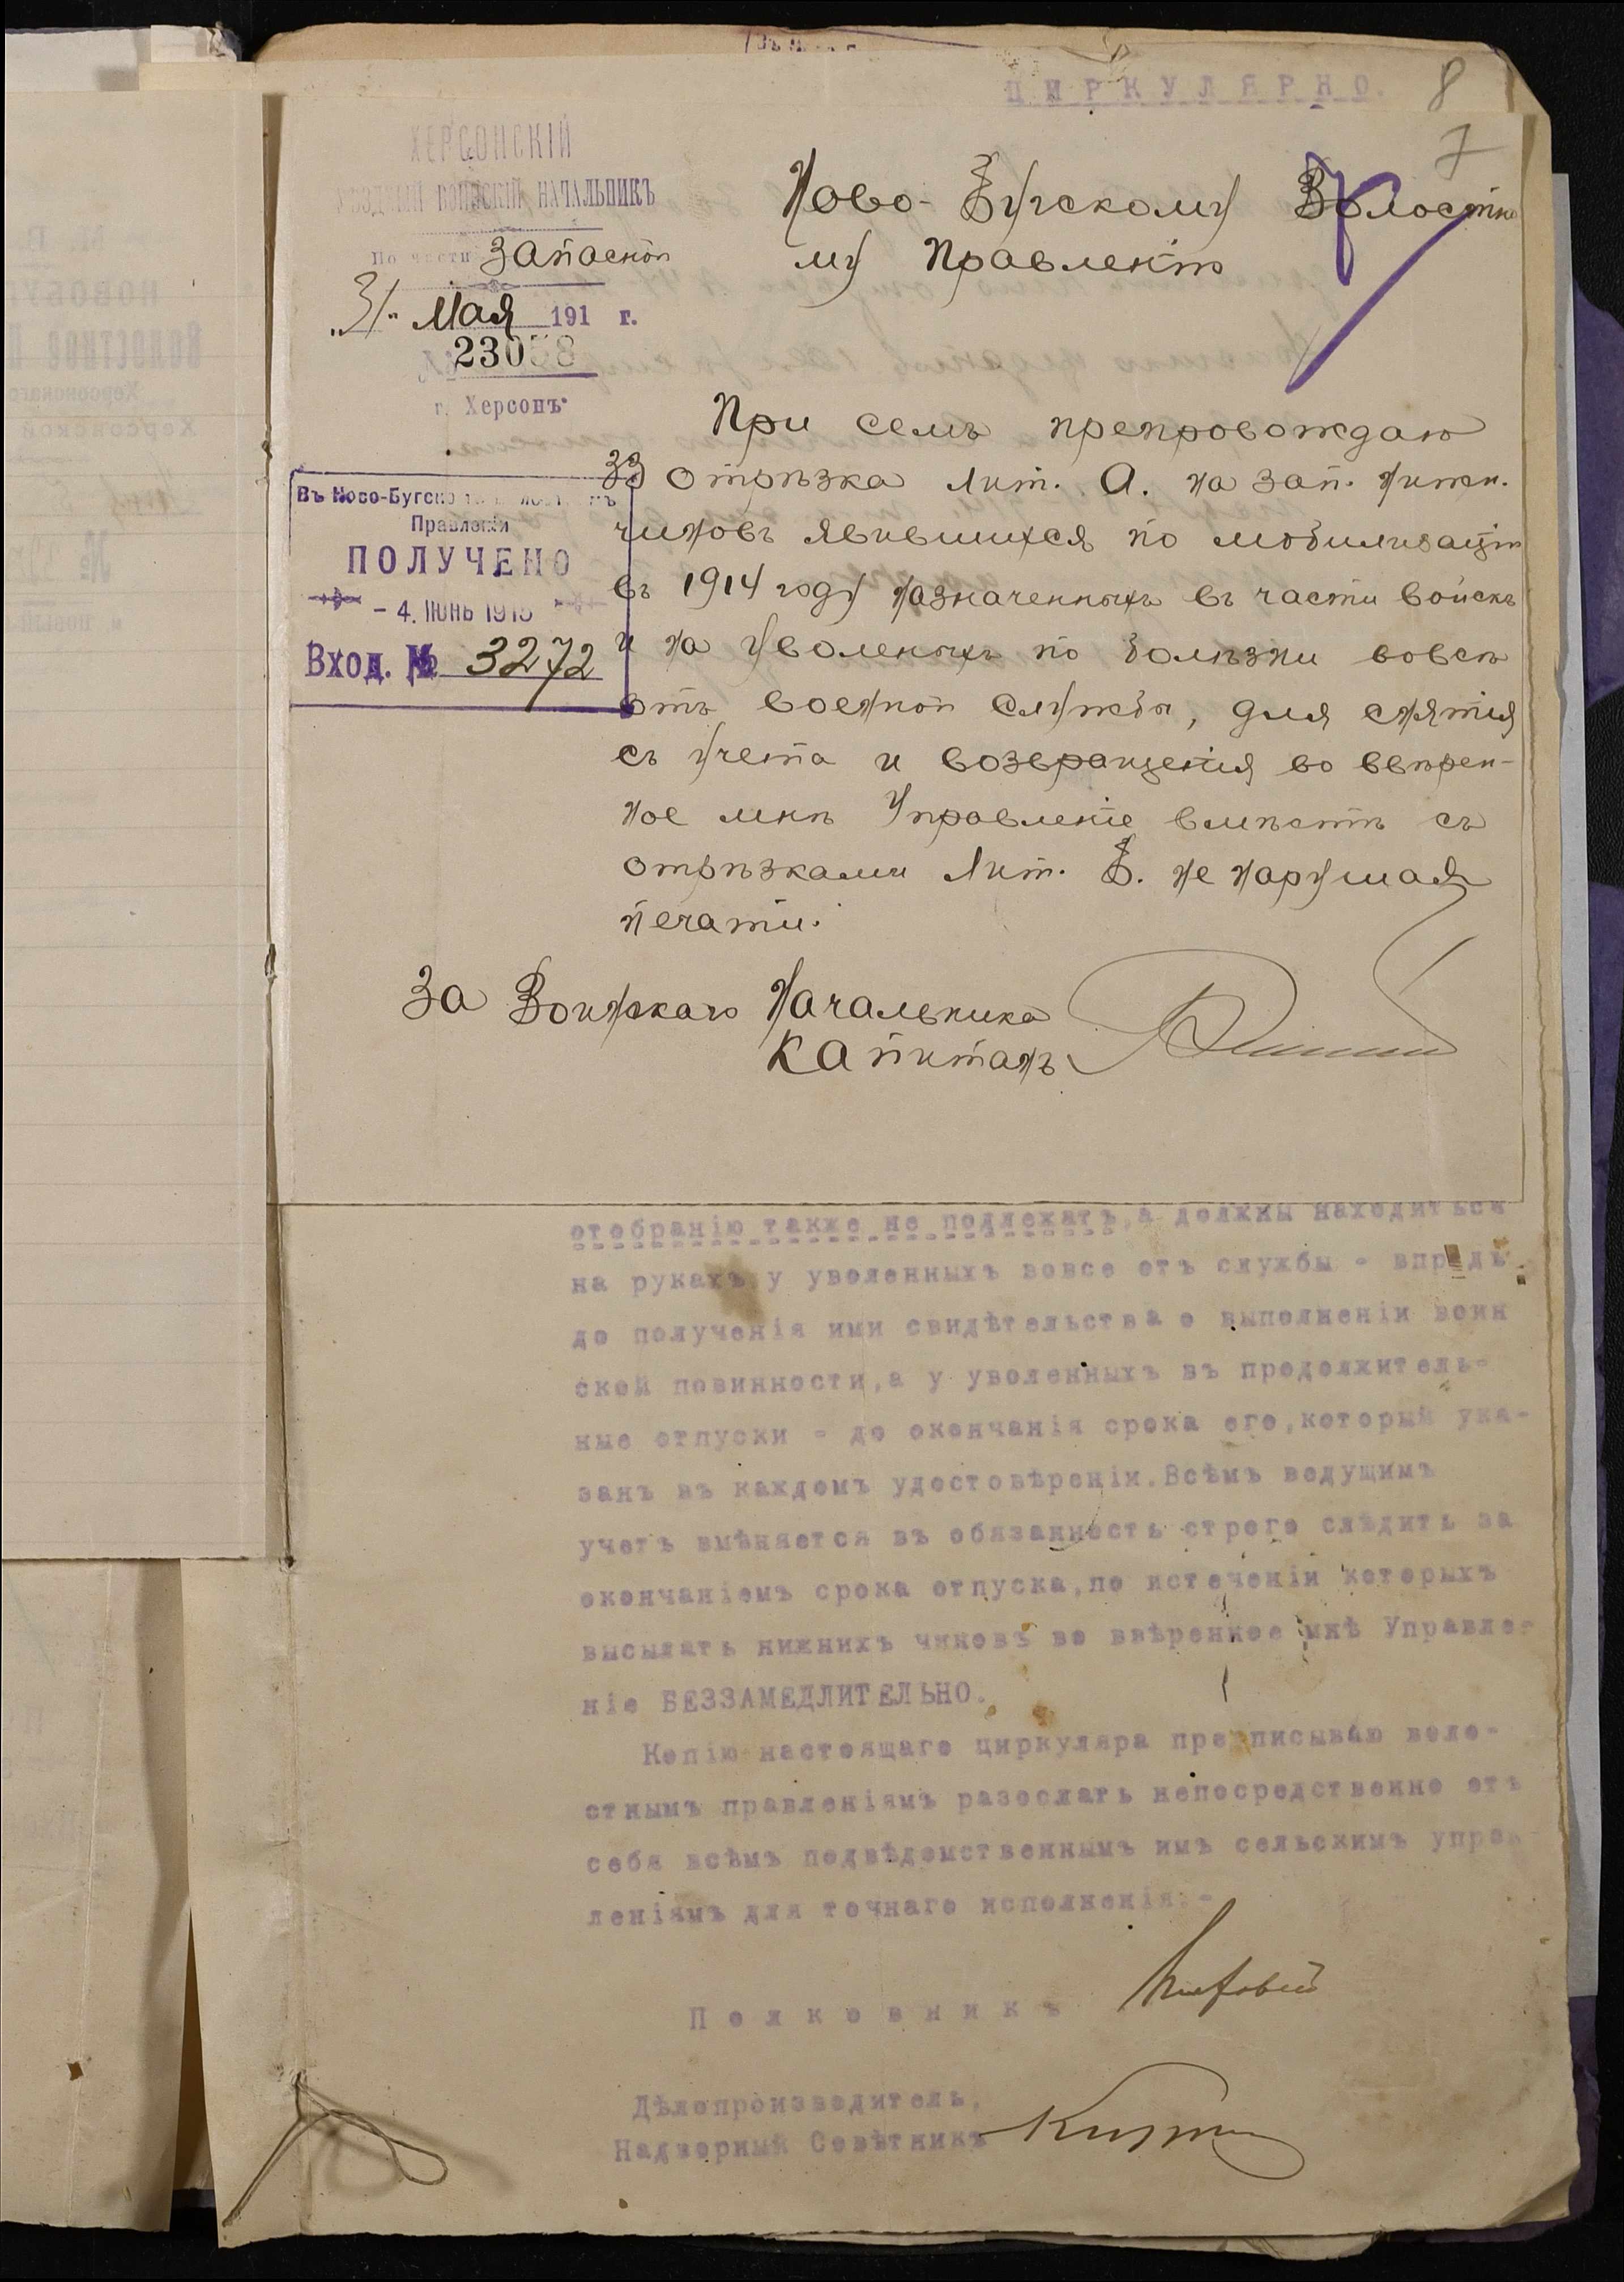 ЦИРКУЛЯРНО.
8
7
ХЕРСОНСКІЙ
УѢЗДНЫЙ ВОИНСКІЙ НАЧАЛЬНИКЪ
По части запасной
"31" Мая 191 г.
№ 23058
г. Херсонъ
Ново-Бугскому Волостно
му Правленію
Въ Ново-Бугско
Правленіи
ПОЛУЧЕНО
- 4. ІЮНЬ 1915
Вход. № 3272
При семъ препровождаю
33 отрѣзка Лит. А. на зап. нижн.
чиновъ явившихся по мобилизаціи
въ 1914 году назначенныхъ въ части войскъ
и на уволеныхъ по болѣзни вовсе
отъ военной службы, для снятія
съ учета и возвращенія во ввѣрен-
ное мнѣ Управленіе вмѣстѣ съ
отрѣзками Лит. Б. не нарушая
печати.
За Воинскаго Начальника
Капитанъ
отобранію также не подлежатъ, а должны находиться
на рукахъ у уволенныхъ вовсе отъ службы - впредь
до полученія ими свидѣтельства о выполненіи воин
ской повинности, а у уволенныхъ въ продолжитель-
ные отпуски - до окончанія срока его, который ука-
занъ въ каждомъ удостовѣреніи. Всѣмъ ведущимъ
учетъ вмѣняется въ обязанность строго слѣдить за
окончаніемъ срока отпуска, по истеченіи которыхъ
высылать нижнихъ чиновъ во ввѣренное мнѣ Управле-
ніе БЕЗЗАМЕДЛИТЕЛЬНО.
Копію настоящаго циркуляра предписываю воло-
стнымъ правленіямъ разослать непосредственно отъ
себя всѣмъ подвѣдомственнымъ имъ сельскимъ управ
леніямъ для точнаго исполненія.-
Полковникъ
Дѣлопроизводитель,
Надворный Совѣтникъ